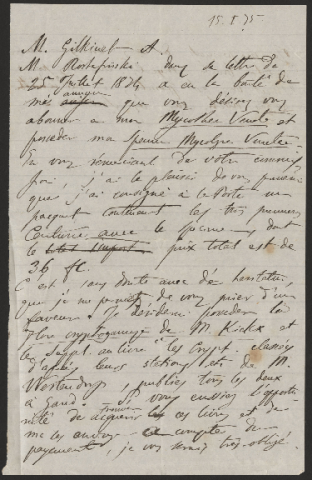 15. 8. 75
M. Gilkinet A.
M. Rostafinski dans sa lettre du
25 Juillet 1874 a eu la bonté de
m'es annoncer que vous désirez vous
abonner à ma Mycotheca Veneta et
posséder ma Spec. Mycolog. Veneta.
En vous remerciant de votre
j'ai le plaisir de vous prévenir
que j'ai consigné à la Poste un
paquet contenant les trois premières
Centuries avec le Specimen, dont
le prix total est de
36 fc.
C'est sans doute avec d'
que je me permets de vous prier d'une
faveur. Je désirerai posséder la
Flore cryptogamique de M. Kickx et
le Suppl. au livre "les Crypt. classées
d'après leurs stations" etc. de M.
Westendorp, publiés tous les deux
à Gand. Si vous eussiez l'opportu-
nité de acquérir ces livres et de
me les envoyer compte de
payement, je vous serais très-obligé.